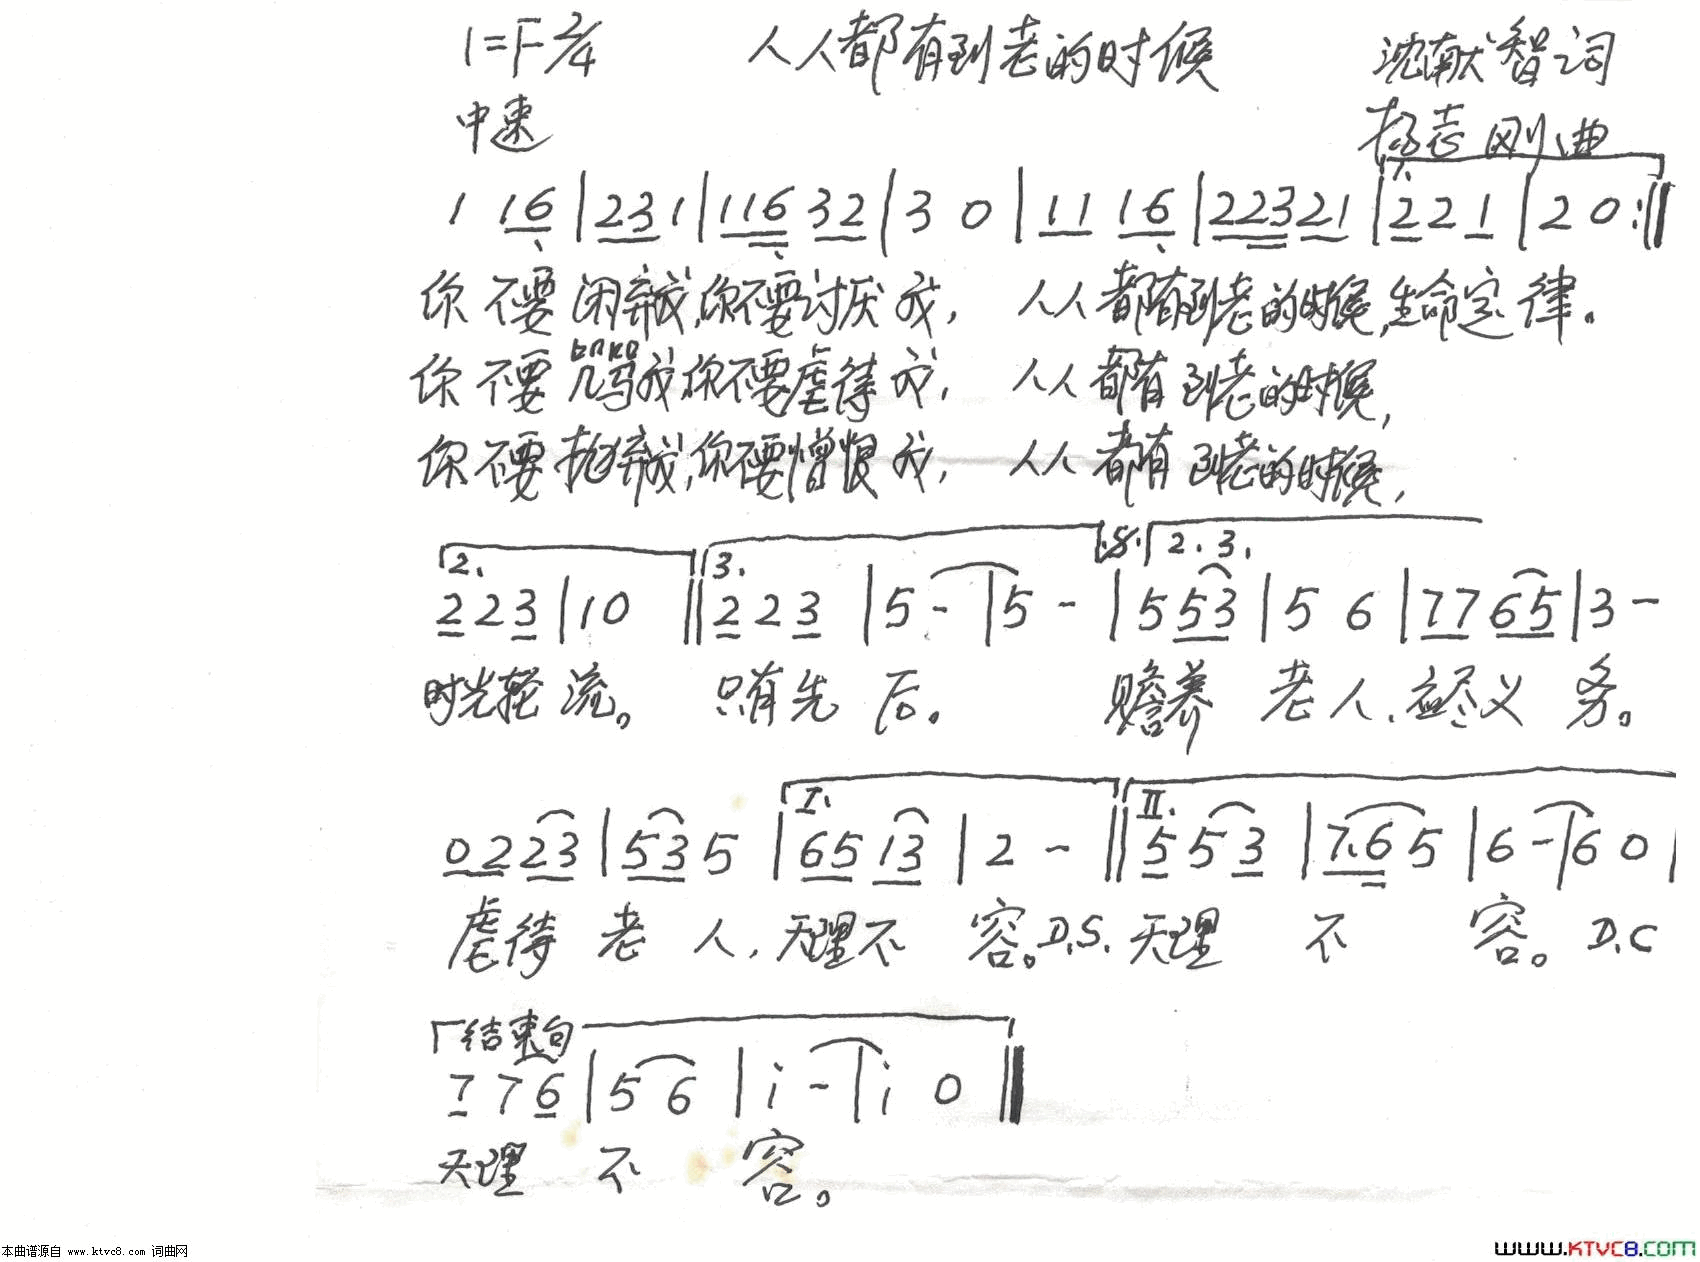 1=F 2/4 人人都有到老的时候 沈献智词
中速 杨志刚曲
1 16 | 231 | 116 32 | 3 0 | 11 16 | 223 21 | 1. 221 | 20 :‖
你不要闲弃我,你不要讨厌我, 人人都有到老的时候,生命定律。
你不要咒骂我,你不要虐待我, 人人都有到老的时候,
你不要抛弃我,你不要憎恨我, 人人都有到老的时候,
2. 223 | 10 ‖ 3. 223 | 5 - | 5 - | .S. 2.3. 553 | 5 6 | 77 65 | 3 -
时光轮流。 只有先后。 赡养老人,应尽义务。
02 23 | 53 5 | I. 65 13 | 2 - ‖ II. 553 | 7.6 5 | 6 - | 6 0 |
虐待老人,天理不容。D.S. 天理不容。D.C
结束句
776 | 5 6 | i - | i 0 ‖
天理不容。
本曲谱源自 www.ktvc8.com 词曲网
www.KTVC8.COM